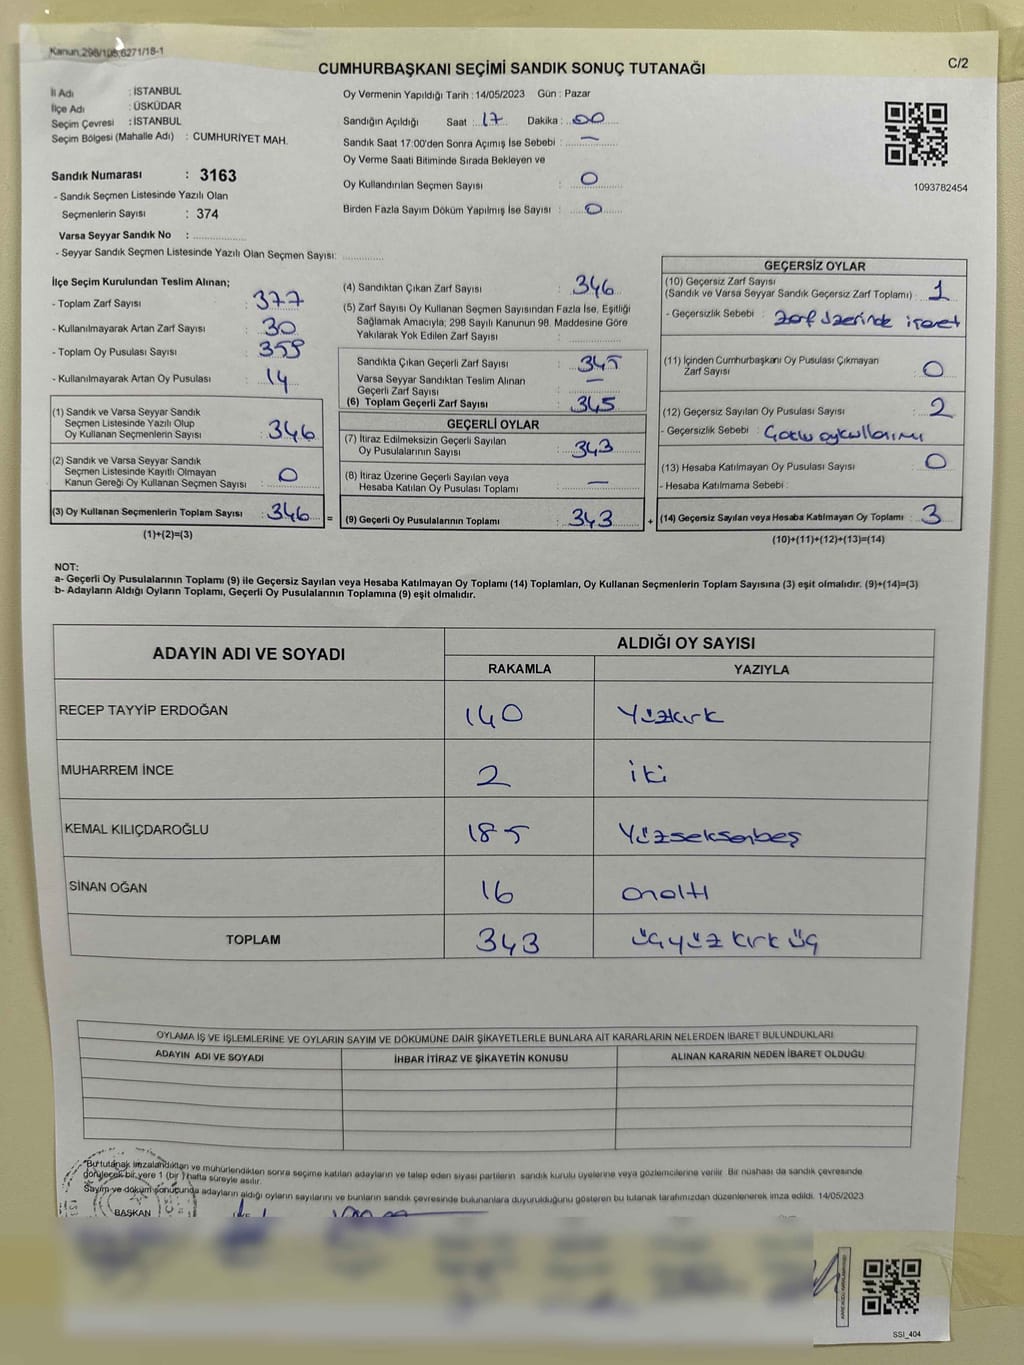 Kanun.298/105,6271/18-1
C/2
CUMHURBAŞKANI SEÇİMİ SANDIK SONUÇ TUTANAĞI
İl Adı : İSTANBUL
İlçe Adı : ÜSKÜDAR
Seçim Çevresi : İSTANBUL
Seçim Bölgesi (Mahalle Adı) : CUMHURİYET MAH.
Sandık Numarası : 3163
- Sandık Seçmen Listesinde Yazılı Olan
Seçmenlerin Sayısı : 374
Varsa Seyyar Sandık No :
- Seyyar Sandık Seçmen Listesinde Yazılı Olan Seçmen Sayısı:
Oy Vermenin Yapıldığı Tarih : 14/05/2023 Gün : Pazar
Sandığın Açıldığı Saat : 17 Dakika : 00
Sandık Saat 17:00'den Sonra Açımış İse Sebebi : —
Oy Verme Saati Bitiminde Sırada Bekleyen ve
Oy Kullandırılan Seçmen Sayısı : 0
Birden Fazla Sayım Döküm Yapılmış İse Sayısı : 0
1093782454
İlçe Seçim Kurulundan Teslim Alınan;
- Toplam Zarf Sayısı : 377
- Kullanılmayarak Artan Zarf Sayısı : 30
- Toplam Oy Pusulası Sayısı : 359
- Kullanılmayarak Artan Oy Pusulası : 14
(1) Sandık ve Varsa Seyyar Sandık
Seçmen Listesinde Yazılı Olup
Oy Kullanan Seçmenlerin Sayısı : 346
(2) Sandık ve Varsa Seyyar Sandık
Seçmen Listesinde Kayıtlı Olmayan
Kanun Gereği Oy Kullanan Seçmen Sayısı : 0
(3) Oy Kullanan Seçmenlerin Toplam Sayısı : 346 =
(1)+(2)=(3)
(4) Sandıktan Çıkan Zarf Sayısı : 346
(5) Zarf Sayısı Oy Kullanan Seçmen Sayısından Fazla İse, Eşitliği
Sağlamak Amacıyla; 298 Sayılı Kanunun 98. Maddesine Göre
Yakılarak Yok Edilen Zarf Sayısı :
Sandıkta Çıkan Geçerli Zarf Sayısı : 345
Varsa Seyyar Sandıktan Teslim Alınan
Geçerli Zarf Sayısı : —
(6) Toplam Geçerli Zarf Sayısı : 345
GEÇERLİ OYLAR
(7) İtiraz Edilmeksizin Geçerli Sayılan
Oy Pusulalarının Sayısı : 343
(8) İtiraz Üzerine Geçerli Sayılan veya
Hesaba Katılan Oy Pusulası Toplamı : —
(9) Geçerli Oy Pusulalarının Toplamı : 343 +
GEÇERSİZ OYLAR
(10) Geçersiz Zarf Sayısı
(Sandık ve Varsa Seyyar Sandık Geçersiz Zarf Toplamı) : 1
- Geçersizlik Sebebi : zarf üzerinde işaret
(11) İçinden Cumhurbaşkanı Oy Pusulası Çıkmayan
Zarf Sayısı : 0
(12) Geçersiz Sayılan Oy Pusulası Sayısı : 2
- Geçersizlik Sebebi :
(13) Hesaba Katılmayan Oy Pusulası Sayısı : 0
- Hesaba Katılmama Sebebi :
(14) Geçersiz Sayılan veya Hesaba Katılmayan Oy Toplamı : 3
(10)+(11)+(12)+(13)=(14)
NOT:
a- Geçerli Oy Pusulalarının Toplamı (9) ile Geçersiz Sayılan veya Hesaba Katılmayan Oy Toplamı (14) Toplamları, Oy Kullanan Seçmenlerin Toplam Sayısına (3) eşit olmalıdır. (9)+(14)=(3)
b- Adayların Aldığı Oyların Toplamı, Geçerli Oy Pusulalarının Toplamına (9) eşit olmalıdır.
ADAYIN ADI VE SOYADI
ALDIĞI OY SAYISI
RAKAMLA YAZIYLA
RECEP TAYYİP ERDOĞAN 140 Yüzkırk
MUHARREM İNCE 2 iki
KEMAL KILIÇDAROĞLU 185 Yüzseksenbeş
SİNAN OĞAN 16 onaltı
TOPLAM 343 üçyüz kırk üç
OYLAMA İŞ VE İŞLEMLERİNE VE OYLARIN SAYIM VE DÖKÜMÜNE DAİR ŞİKAYETLERLE BUNLARA AİT KARARLARIN NELERDEN İBARET BULUNDUKLARI
ADAYIN ADI VE SOYADI İHBAR İTİRAZ VE ŞİKAYETİN KONUSU ALINAN KARARIN NEDEN İBARET OLDUĞU
*Bu tutanak imzalandıktan ve mühürlendikten sonra seçime katılan adayların ve talep eden siyasi partilerin sandık kurulu üyelerine veya gözlemcilerine verilir. Bir nüshası da sandık çevresinde
görülecek bir yere 1 (bir ) hafta süreyle asılır.
Sayım ve döküm sonucunda adayların aldığı oyların sayılarını ve bunların sandık çevresinde bulunanlara duyurulduğunu gösteren bu tutanak tarafımızdan düzenlenerek imza edildi. 14/05/2023
BAŞKAN
SSI_404